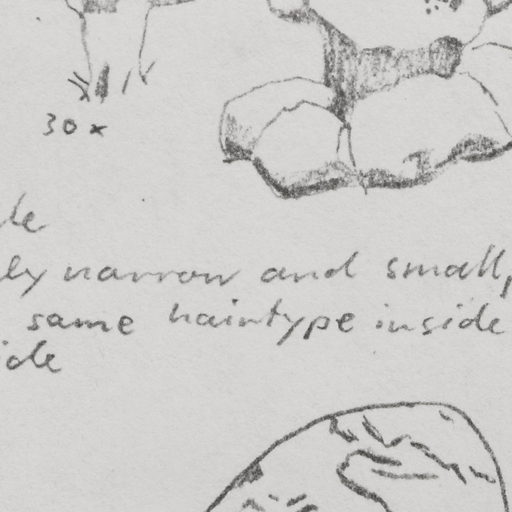 30 x
narrow and small,
same hairtype inside